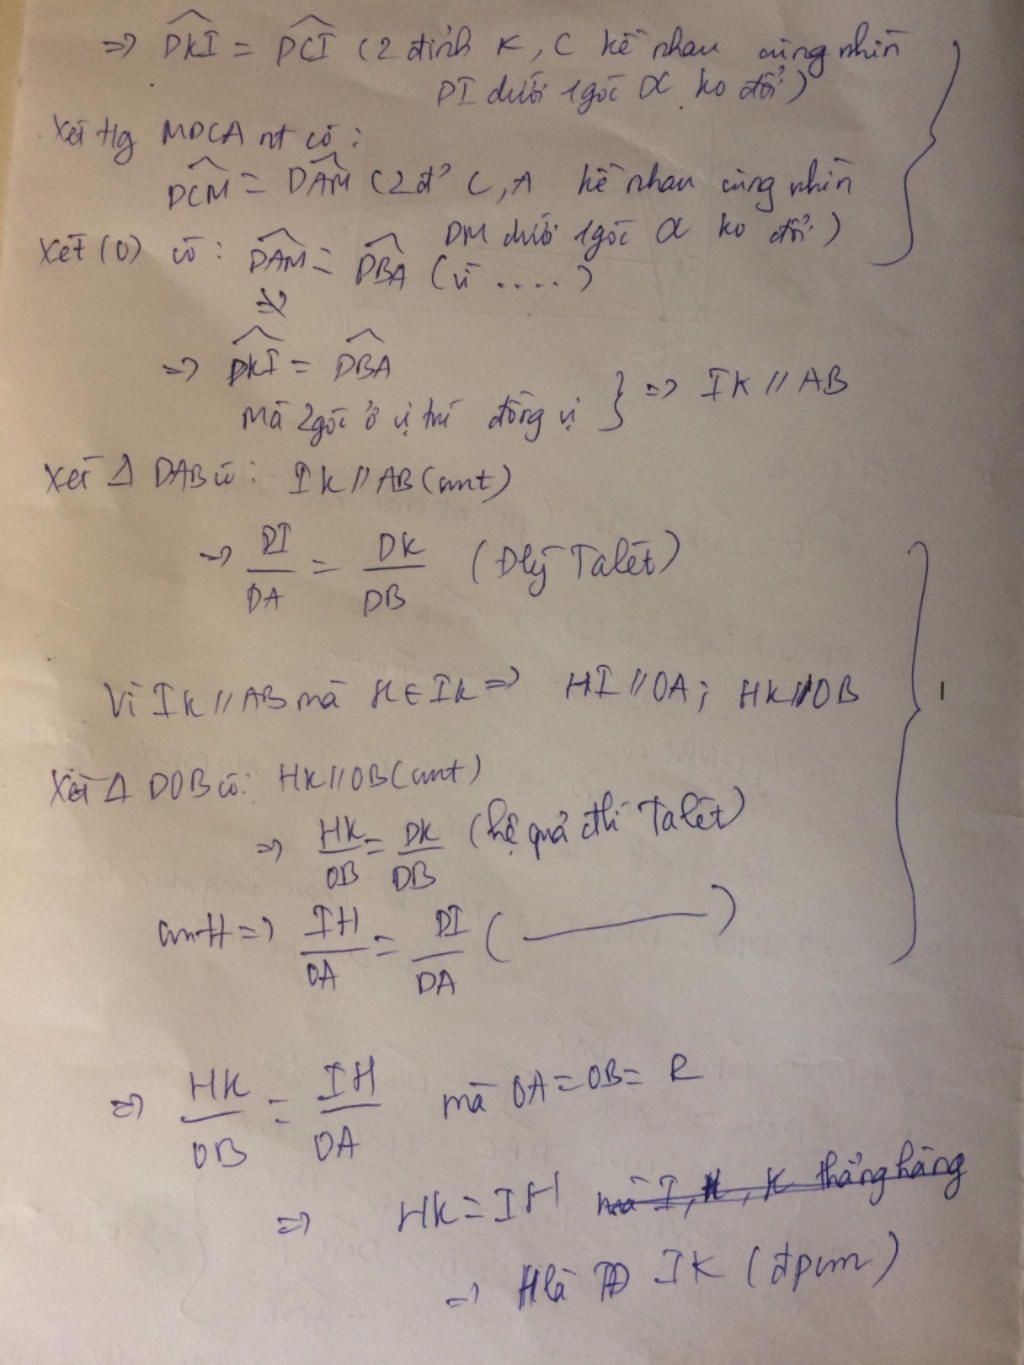 => DKI = DCI (2 đỉnh K, C kề nhau cùng nhìn
DI dưới 1 góc α ko đổi)
Xét tg MDCA nt có:
DCM = DAM (2 đ' C, A kề nhau cùng nhìn
DM dưới 1 góc α ko đổi)
Xét (O) có: DAM = DBA (vì ....)
=> DKI = DBA
Mà 2 góc ở vị trí đồng vị } => IK // AB
Xét Δ DAB có: IK // AB (cmt)
=> DI/DA = DK/DB (Đlý Talét)
Vì IK // AB mà H ∈ IK => HI // OA; HK // OB
Xét Δ DOB có: HK // OB (cmt)
=> HK/OB = DK/DB (hệ quả đlí Talét)
cmtt => IH/OA = DI/DA ( ——— )
=> HK/OB = IH/OA mà OA = OB = R
=> HK = IH mà I, H, K thẳng hàng
=> H là TĐ IK (đpcm)